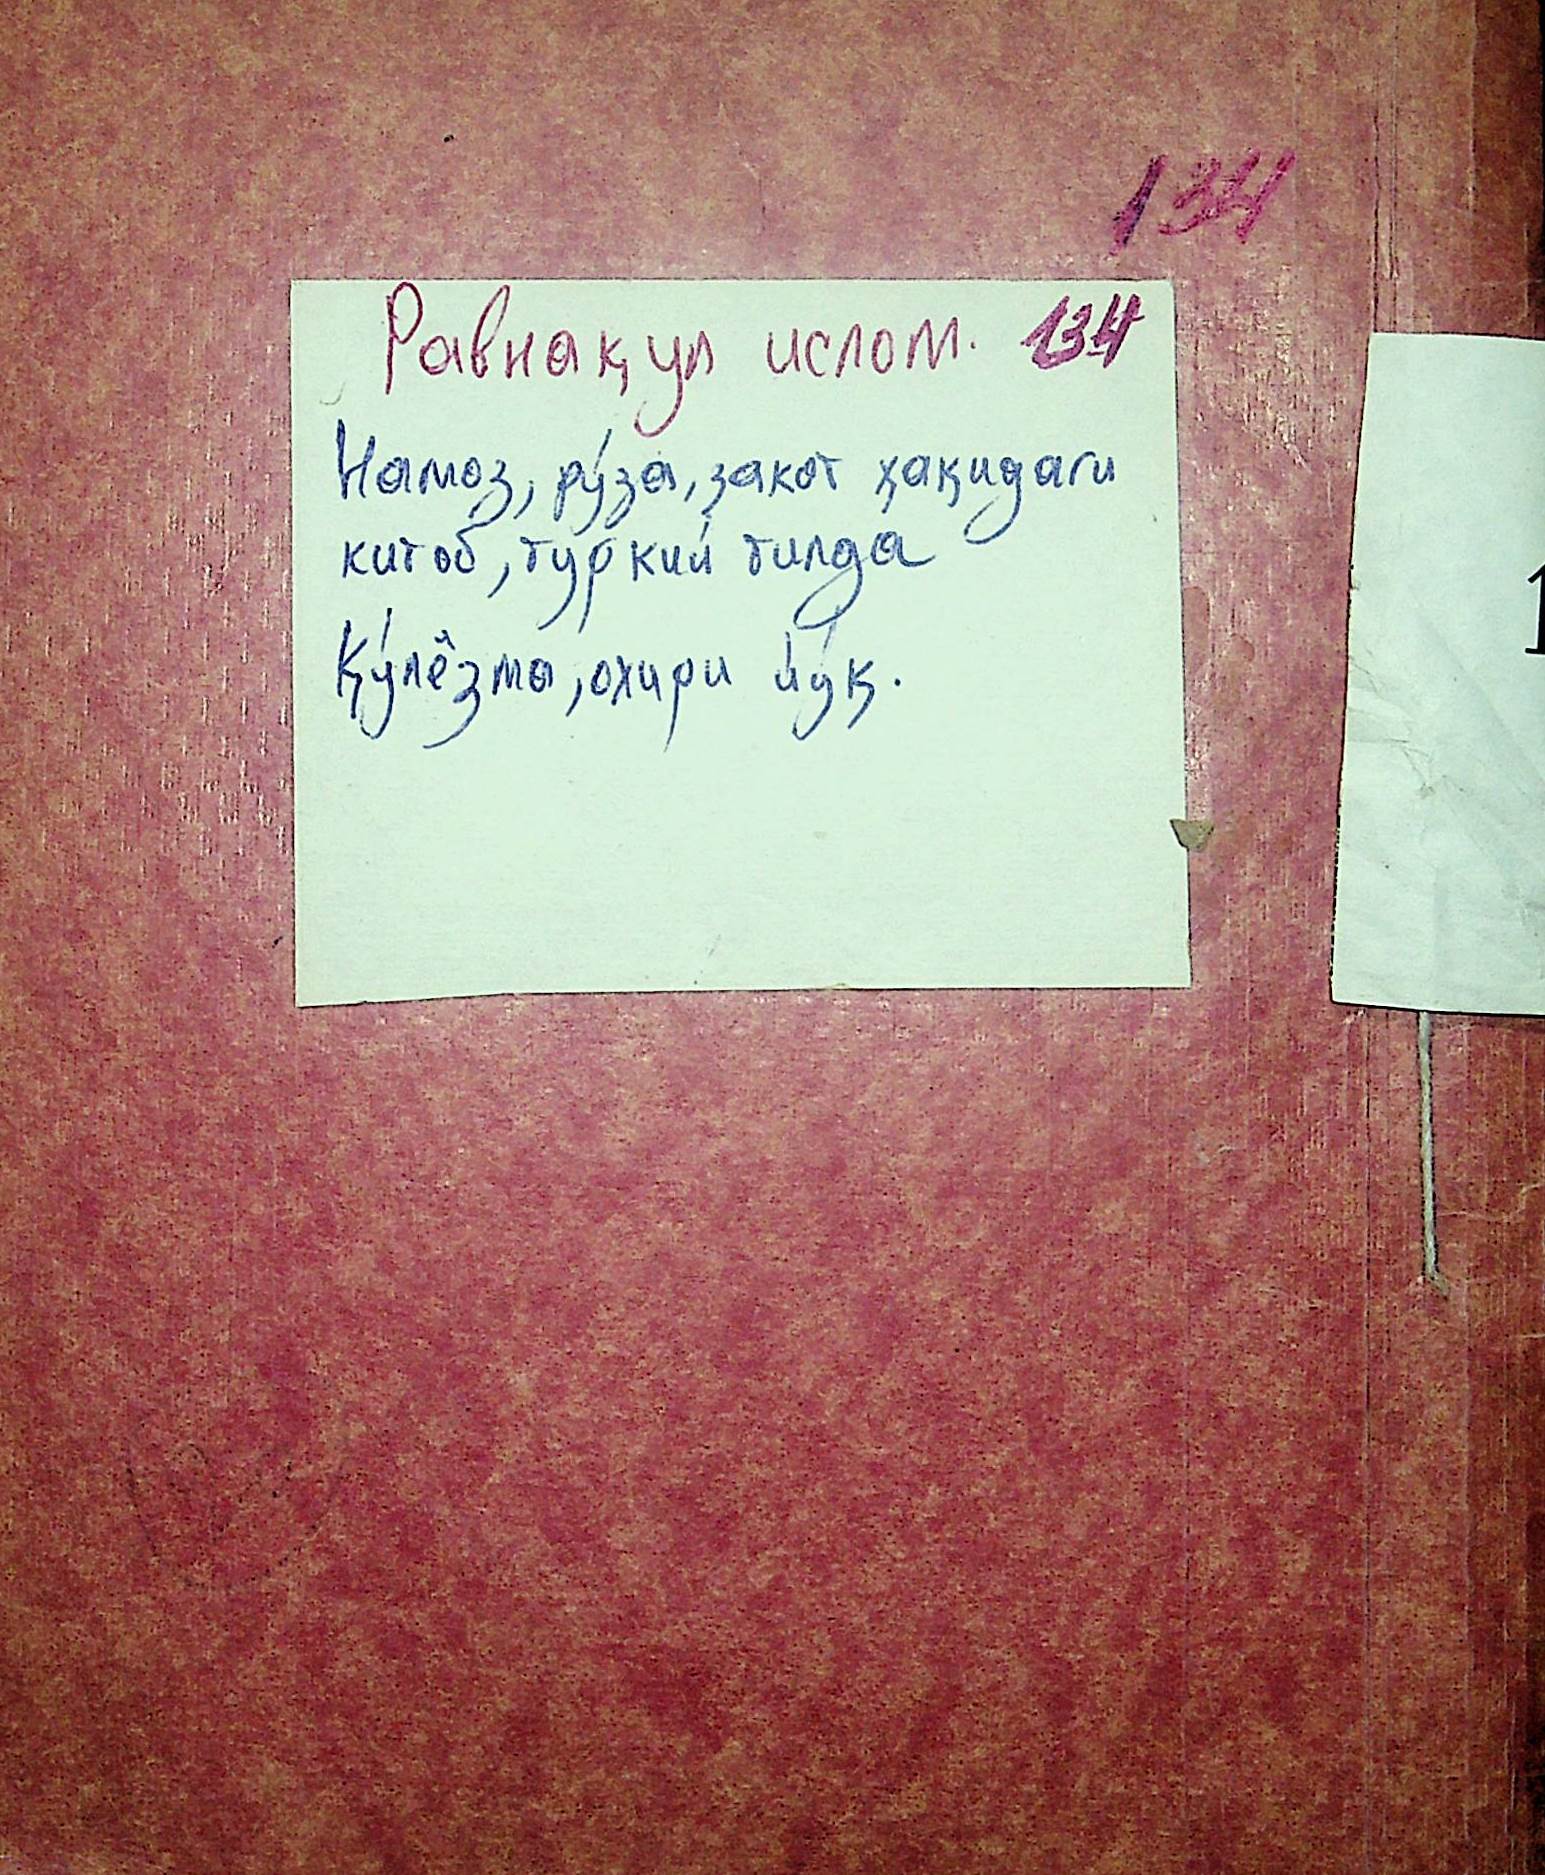 134
Равнақул ислом. 134
Намоз, рўза, закот ҳақидаги
китоб, туркий тилда
Қўлёзма, охири йўқ.
1